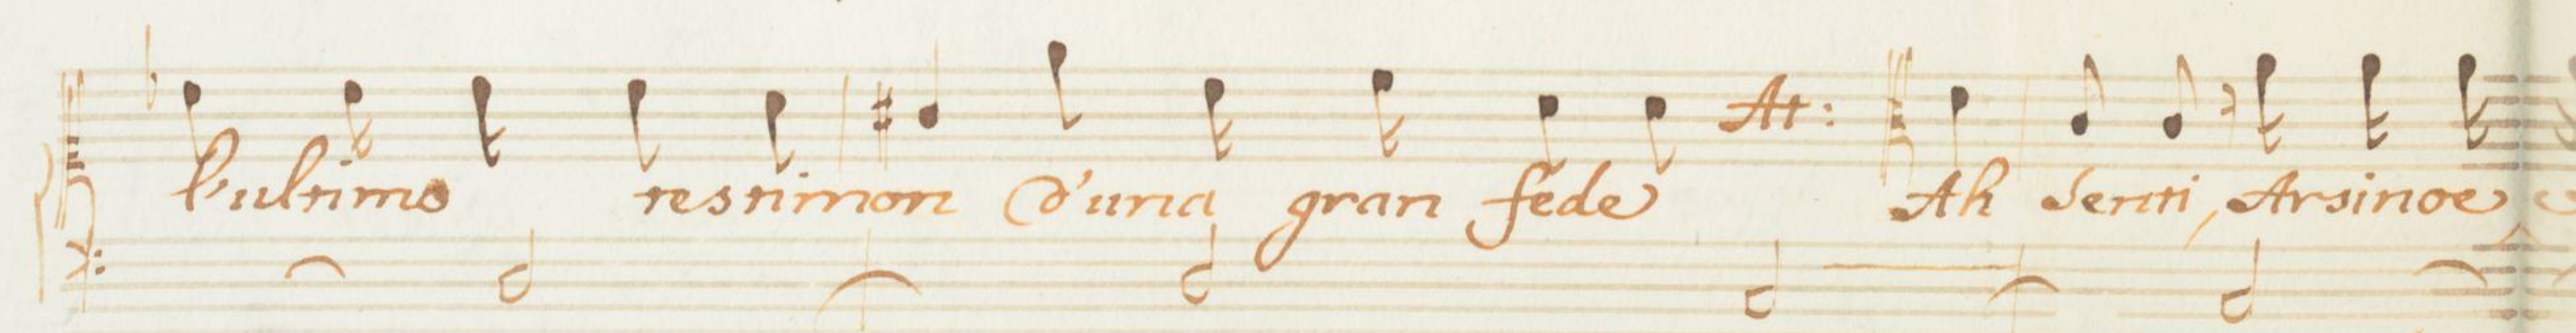 l'ultimo testimon d'una gran fede At: Ah senti, Arsinoe e